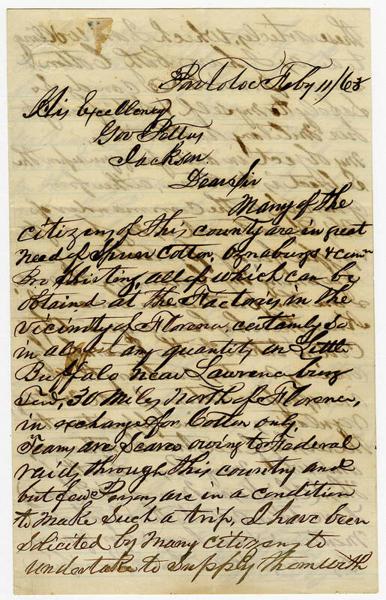 Pontotoc Feby 11/63
His Excellency
Gov Pettus
Jackson
Dear Sir
Many of the
citizens of this county are in great
need of Spun Cotton, Osnaburgs &
for Shirting, all of which can be
obtained at the Factories in the
vicinity of Florence, certainly so
in almost any quantity on Little
Buffalo near Lawrenceburg
Ten, 30 Miles North of Florence,
in exchange for Cotton only.
Teams are Scarce owing to Federal
raids through this country and
but few Persons are in a condition
to make such a trip, I have been
Solicited by Many citizens to
undertake to supply them with